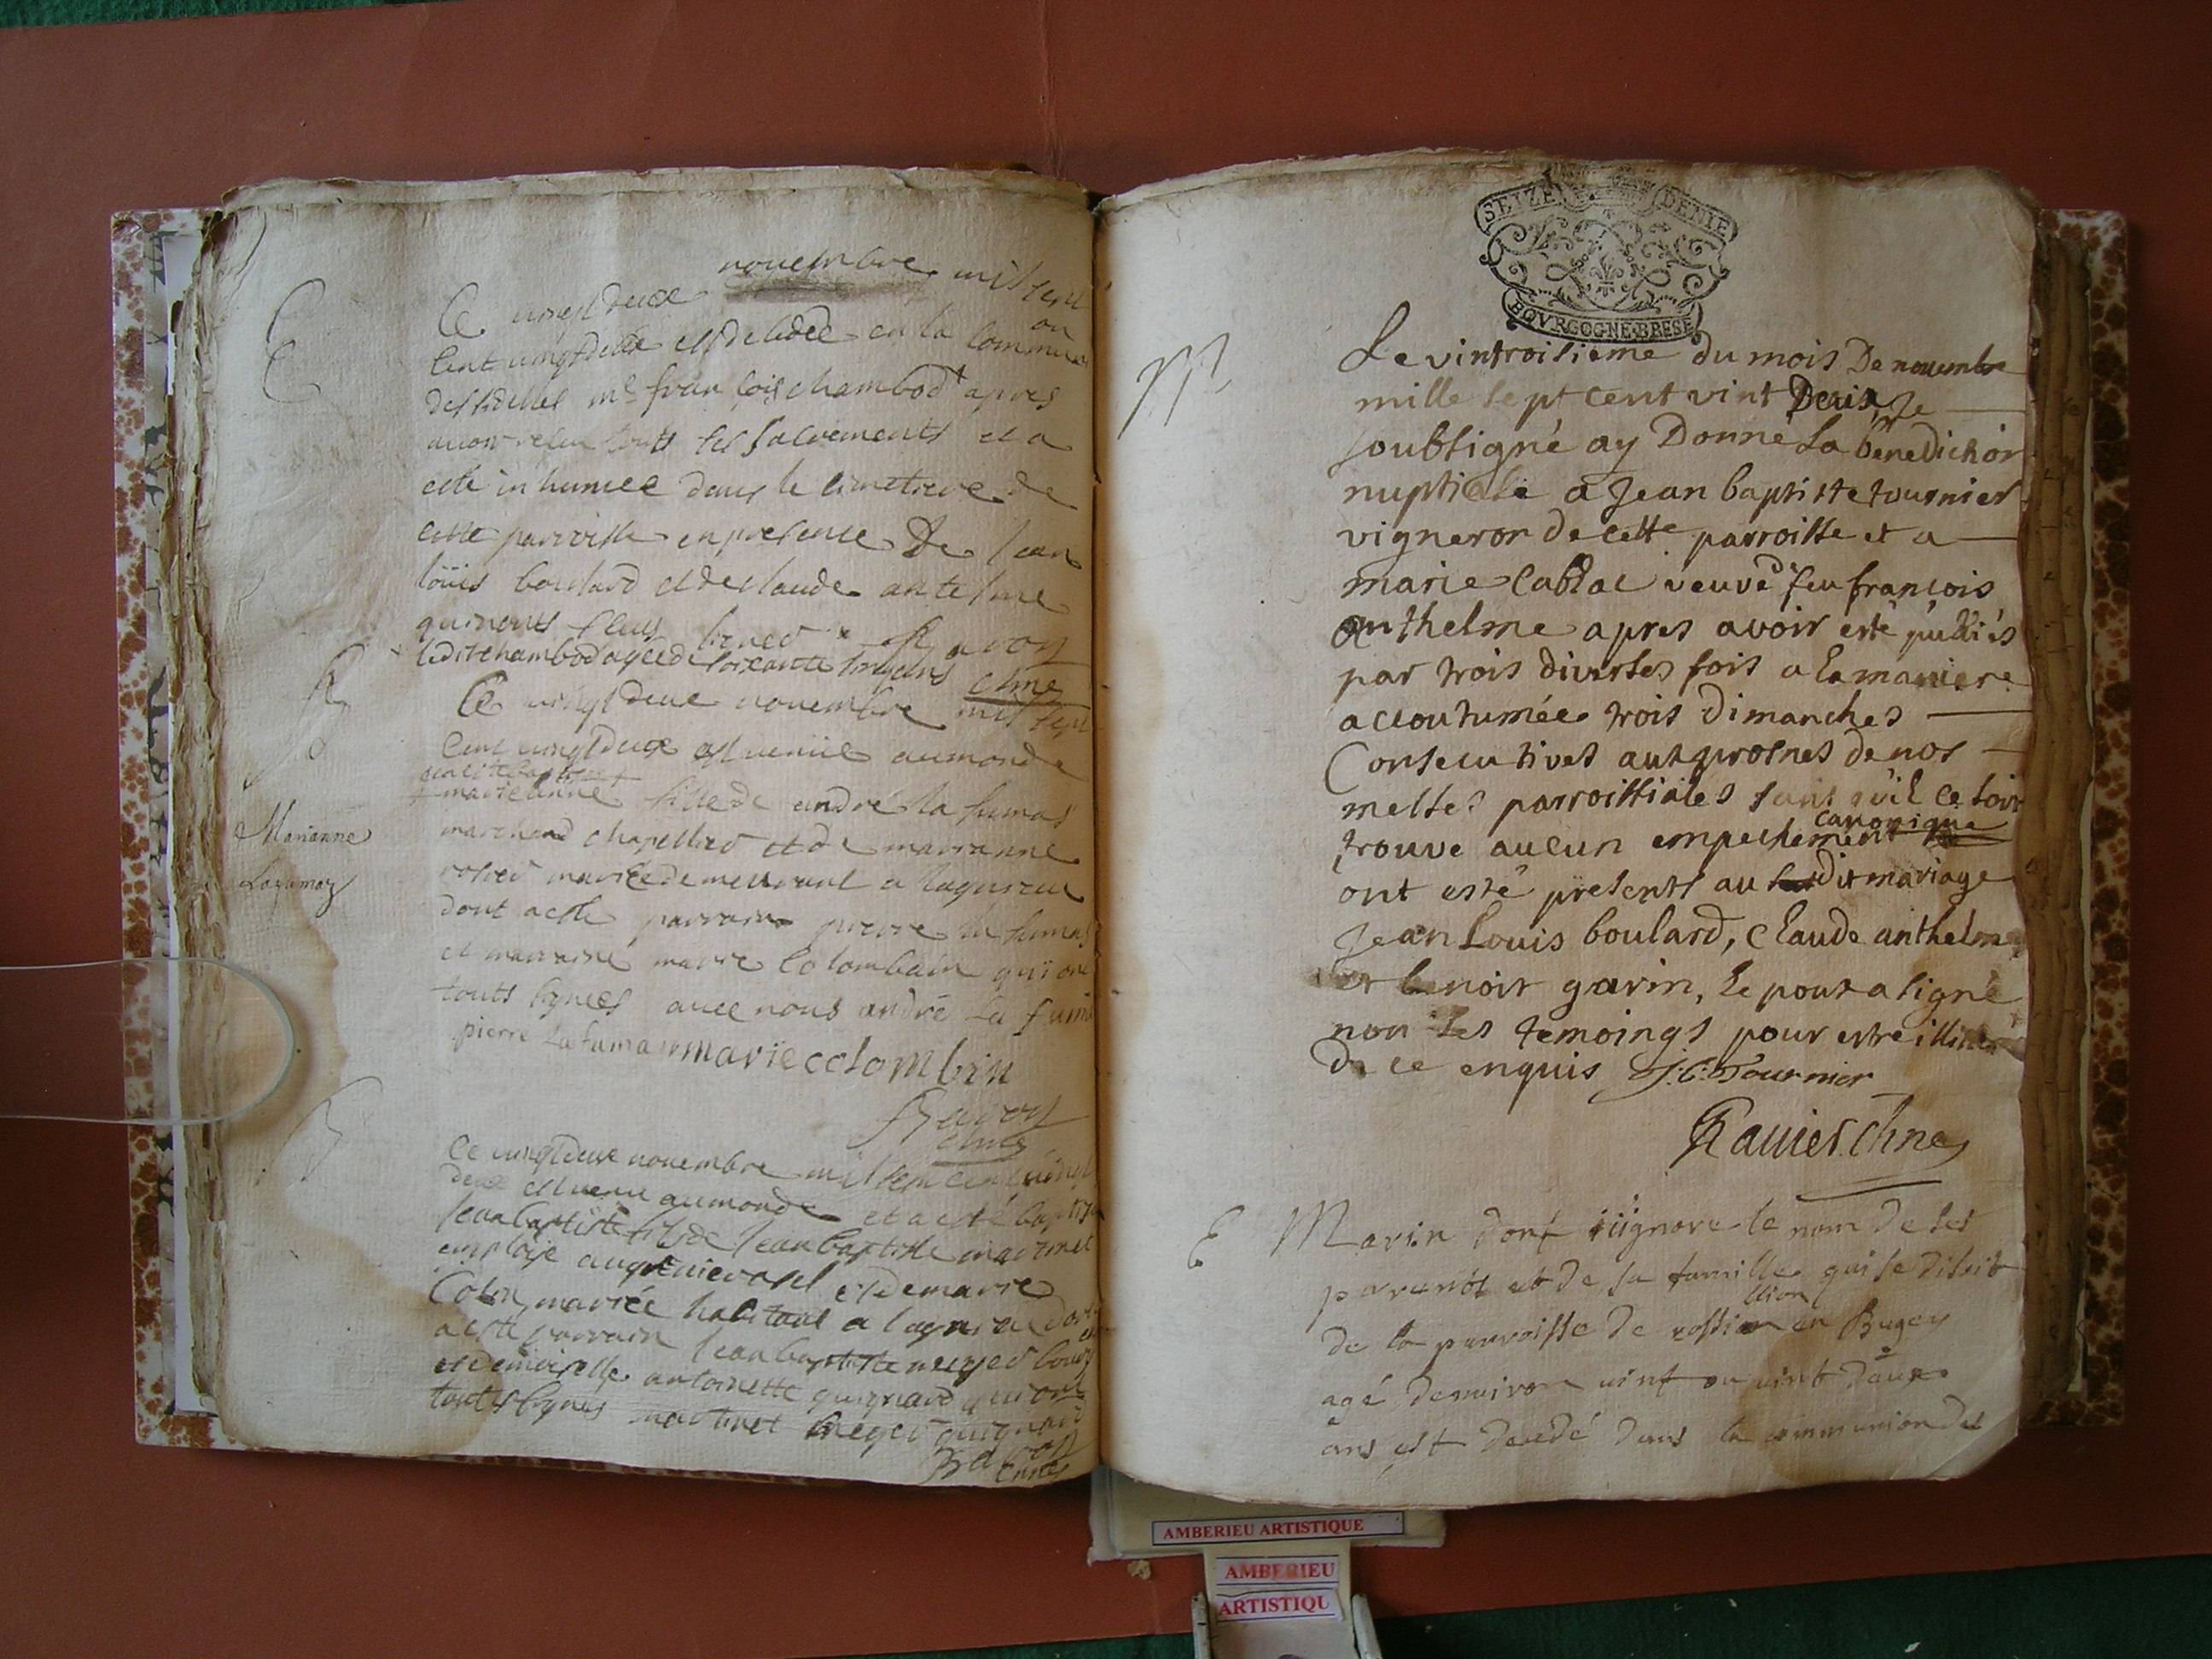 Ce vingt deux novembre mil sept
Cent vingt deux est decedée en la commu on
des fidelles me francois chambod apres
avoir receu touts les sacrements et a
esté inhumee dans le cimetiere de
cette parroisse en presence De Jean
loüis boulard et de claude antelme
qui nont sceus signer Ravon
ledit chambod agée de soixante cinq ans chne
Ce vingt deux novembre mil sept
Cent vingt deux est venüe au monde
marieanne fille de andré la fumas
Marianne
Lafumaz
marchand chapellier et de marianne
mariée demeurant a lagnieu
dont acte parrain pierre la fumas
et marraine marie Colombain qui ont
touts signees avec nous andré La fuma
pierre Lafuma marie colombin
Ravon
chne
Ce vingt deux novembre mil sept cent vingt
deux est venu au monde et a esté baptisé
Jean baptiste fils de Jean baptiste martinet
employe au grenier a sel et de marie
Colon mariée habitant a lagnieu dont
acte parrain Jean baptiste meyer
et demoiselle antoinette quignard qui ont
touts signes martinet meyer quignard
Ravon
chne
SEIZE DENIE
BOVRGOGNE BRESE
M
Le vintroisieme du mois De novembre
mille sept cent vint Deux Je
soubsigné ay Donné La benediction
nuptiale a Jean baptiste tournier
vigneron de cette parroisse et a
marie Cablac veuve d feu francois
anthelme apres avoir esté publiés
par trois diverses fois a la maniere
accoutumée trois dimanches
Consecutives aux prosnes de nos
messes parroissiales sans qu'il ce soit
trouve aucun empechement canonique
ont esté presents au dit mariage
Jean Louis boulard, Claude anthelme
et benoit gavin, Le poux a signé
non Les temoings pour estre illiteres
De ce enquis J.b. Tournier
Ravier chne
E
Marin dont j'ignore le nom de ses
parents et de sa famille qui se disoit
de la parroisse de rossillion en Bugey
agé denviron vint ou vint deux
ans est decedé dans la communion des
AMBERIEU ARTISTIQUE
AMBERIEU
ARTISTIQU